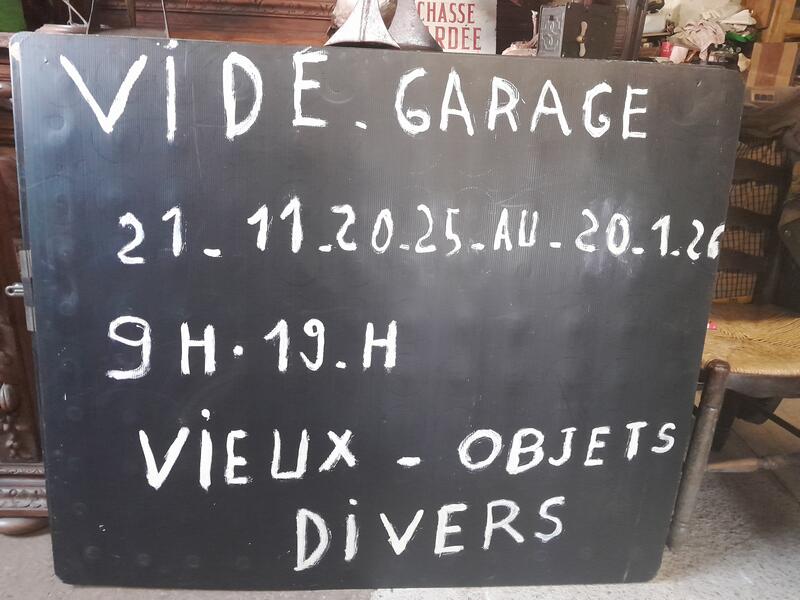 CHASSE
RDÉE
VIDE. GARAGE
21-11-2025-AU-20-1.26
9H.19.H
VIEUX - OBJETS
DIVERS